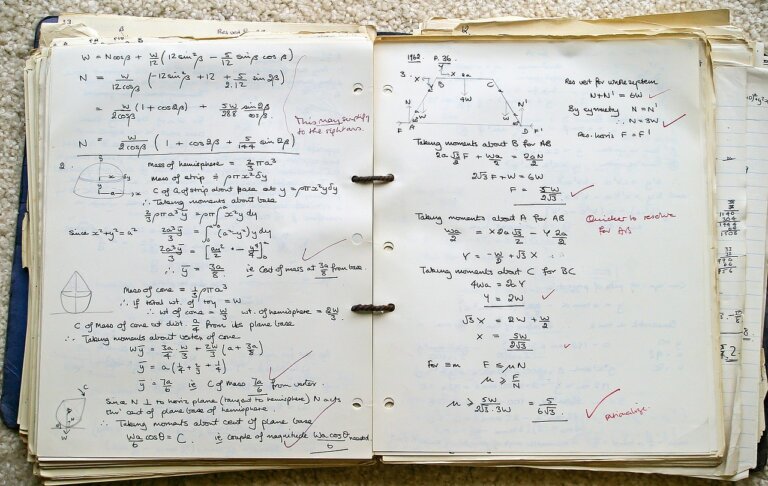 W = N cosβ + W/12 (12 sin²β − 5/12 sinβ cosβ)
N = W/12cosβ (−12 sin²β + 12 + 5/2.12 sin 2β)
= W/2cosβ (1 + cos2β) + 5W/288 sin2β/cosβ
N = W/2cosβ (1 + cos2β + 5/144 sin2β)
This may simplify
to the right ans.
2.
Mass of hemisphere = 2/3 ρπa³
Mass of strip ≐ ρπx²δy
C of G of strip about base ats y = ρπx²yδy
∴ Taking moments about base
2/3 ρπa³ ȳ = ρπ ∫ x²y dy
Since x² + y² = a²
2a³/3 ȳ = ∫ (a² − y²) y dy
∴ ȳ = 3a/8 ie Cent of mass at 3a/8 from base.
Mass of cone = 1/3 ρπa³
∴ if total wt. of toy = W
∴ wt of cone = W/3 wt. of hemisphere = 2W/3
C of Mass of cone at dist. a/4 from its plane base
∴ Taking moments about vertex of cone
Wȳ = 3a/4 · W/3 + 2W/3 (a + 3a/8)
ȳ = 7a/6 ie C of Mass 7a/6 from vertex.
Since N ⊥ to horiz plane (tangent to hemisphere) N acts
thro' cent of plane base of hemisphere.
∴ Taking moments about cent of plane base
Wa/6 cosθ = C. ie couple of magnitude Wa cosθ/6 needed.
1962 P. 36.
3.
X Y X 2a
B C
4W
N
W
F A D F'
Res vert for whole system
N + N' = 6W
By symmetry N = N'
∴ N = 3W
Res. horiz F = F'
Taking moments about B for AB
2a √3/2 F + Wa/2 = 2aN/2
2√3 F + W = 6W
F = 5W/2√3
Taking moments about A for AB
Quicker to resolve
for AB
Wa/2 = X 2a√3/2 − Y 2a/2
Y = −W/2 + √3 X
Taking moments about C for BC
4Wa = 2aY
Y = 2W
√3 X = 2W + W/2
X = 5W/2√3
For ≡m F ≤ μN
μ ≥ F/N
μ ≥ 5W/2√3.3W = 5/6√3.
rationalise.